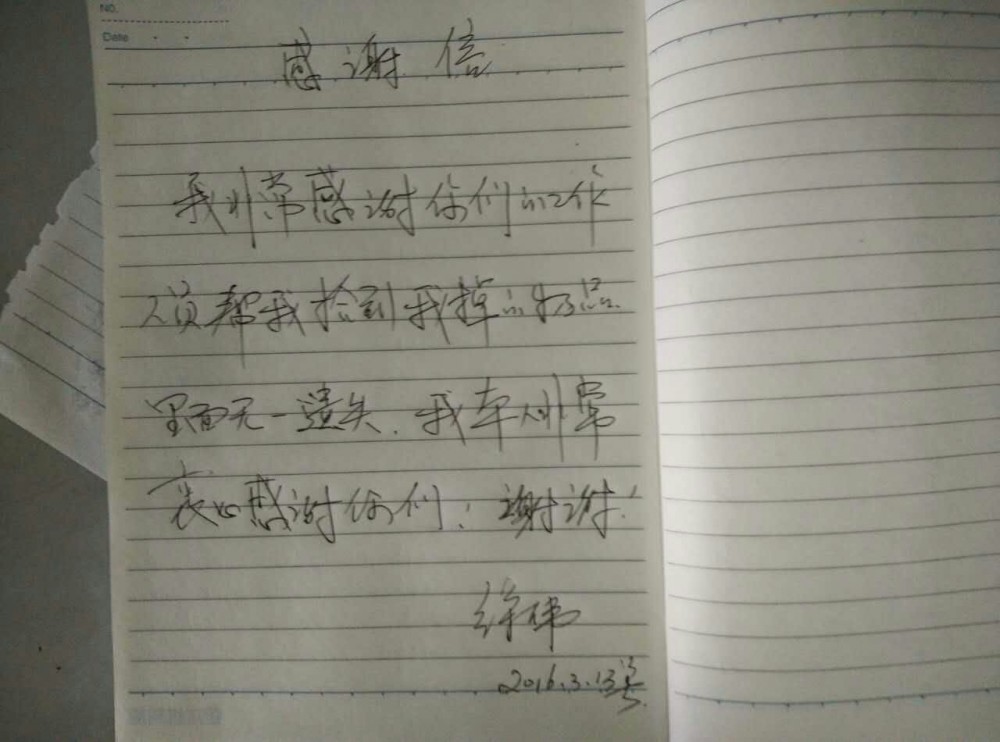 No.
Date
感谢信
我非常感谢你们的工作
人员帮我捡到我掉的物品.
里面无一遗失.我本人非常
衷心感谢你们:谢谢!
徐伟
2016.3.13